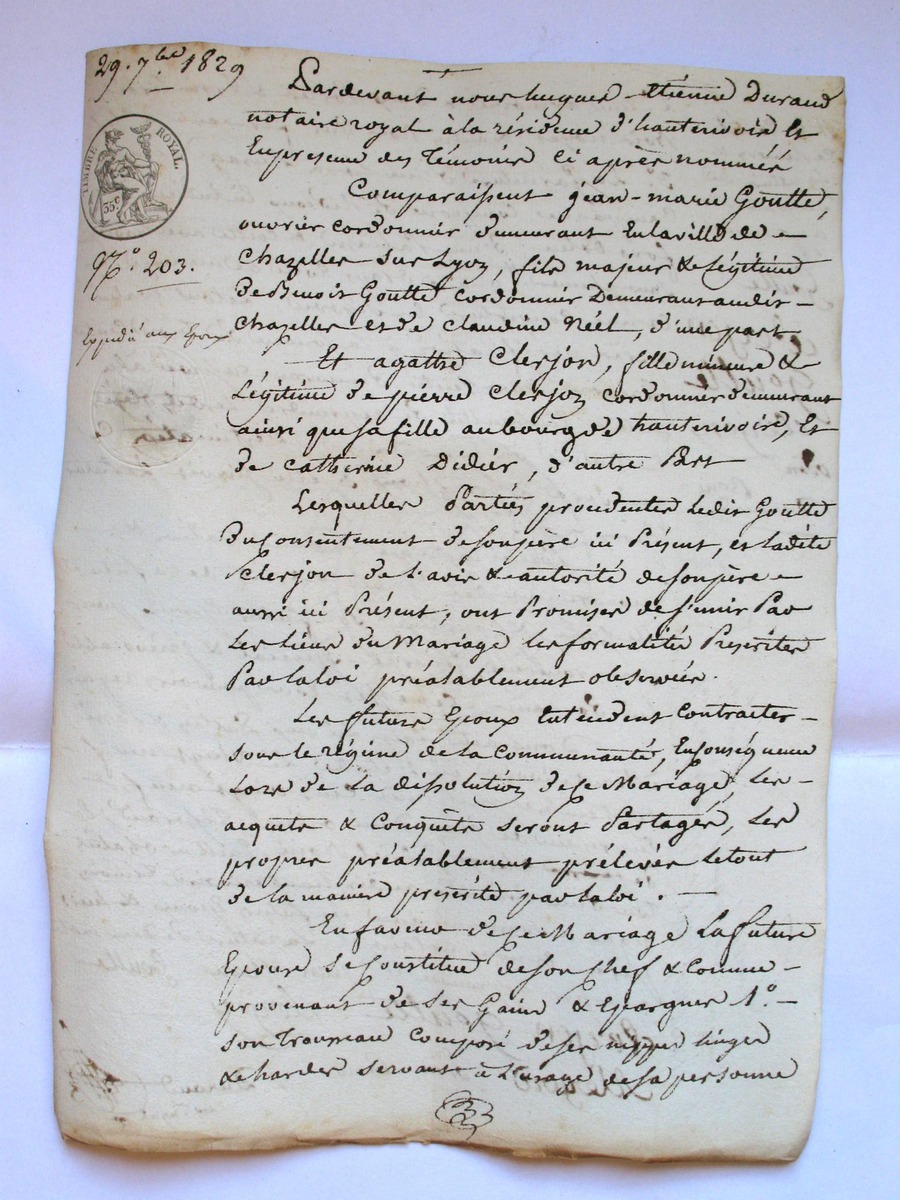 29. 7bre 1829
TIMBRE ROYAL
35c
No. 203.
Expédié aux Epoux
Pardevant nous hugues étienne Durand
notaire royal à la résidence d'hauterivoire, Et
En présence des Témoins Ci après nommés
Comparaissent jean-marie Goutte,
ouvrier cordonnier demeurant En la ville de
Chazelles sur Lyon, fils majeur & Légitime
de Benoit Goutte cordonnier Demeurant audit
Chazelles et de Claudine Néel, d'une part
Et agathe Clerjon, fille mineure &
Légitime de pierre Clerjon cordonnier demeurant
ainsi que sa fille au bourg de hauterivoire, Et
de Catherine Didier, d'autre Part
Lesquelles Parties procedentes ledit Goutte
du consentement de son père ici Présent, et ladite
Clerjon de l'avis & autorité de son père
aussi ici Présent, ont Promises de s'unir Par
Les liens du Mariage les formalités Prescrites
Par la loi préalablement observées.
Les future Epoux Entendent Contracter
sous le régime de la Communauté, En conséquence
Lors de La dissolution de ce Mariage, Les
acquets & Conquets seront Partagés, Les
propres préalablement prélevés Le tout
de la manière prescrite par la loi.
En faveur de ce Mariage La future
Epouse se Constitue de son chef & Comme
provenant de ses Gains & Epargnes 1o.
son Trousseau Composé de ses nippes linges
& hardes servant à L'usage de sa personne